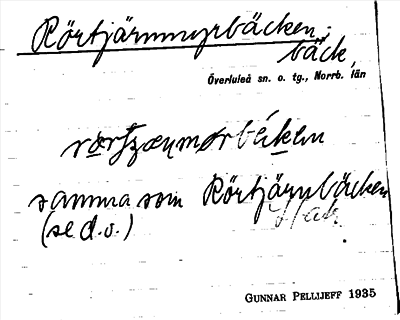 Rörtjärnmyrbäcken,
bäck,
Överluleå sn. o. tg., Norrb. län
samma som Rörtjärnbäcken
(se d.o.)
GUNNAR PELLIJEFF 1935